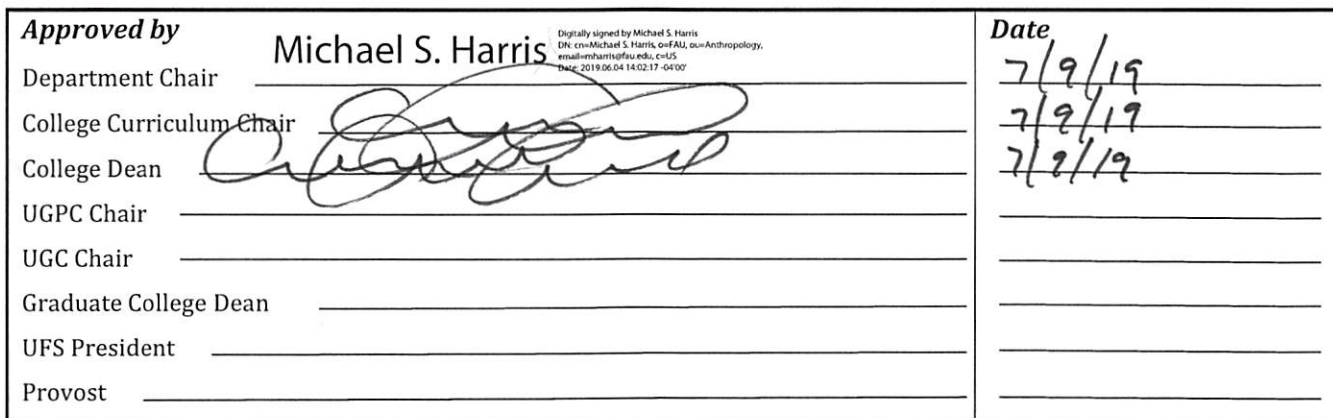 Approved by
Date
Michael S. Harris
Digitally signed by Michael S. Harris
DN: cn=Michael S. Harris, o=FAU, ou=Anthropology,
email=mharris@fau.edu, c=US
Date: 2019.06.04 14:02:17 -04'00'
Department Chair
7/9/19
College Curriculum Chair
7/9/19
College Dean
7/9/19
UGPC Chair
UGC Chair
Graduate College Dean
UFS President
Provost